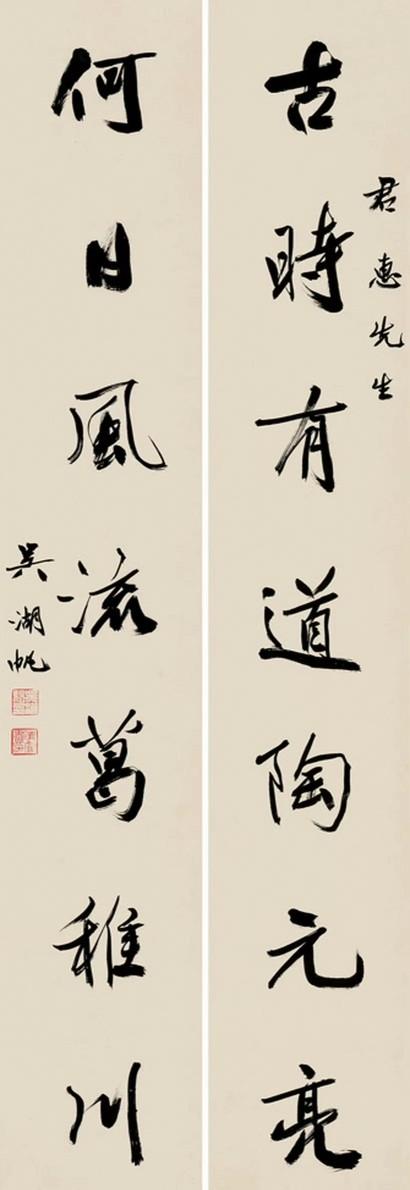 君惠先生
古時有道陶元亮
何日風流葛稚川
吳湖帆